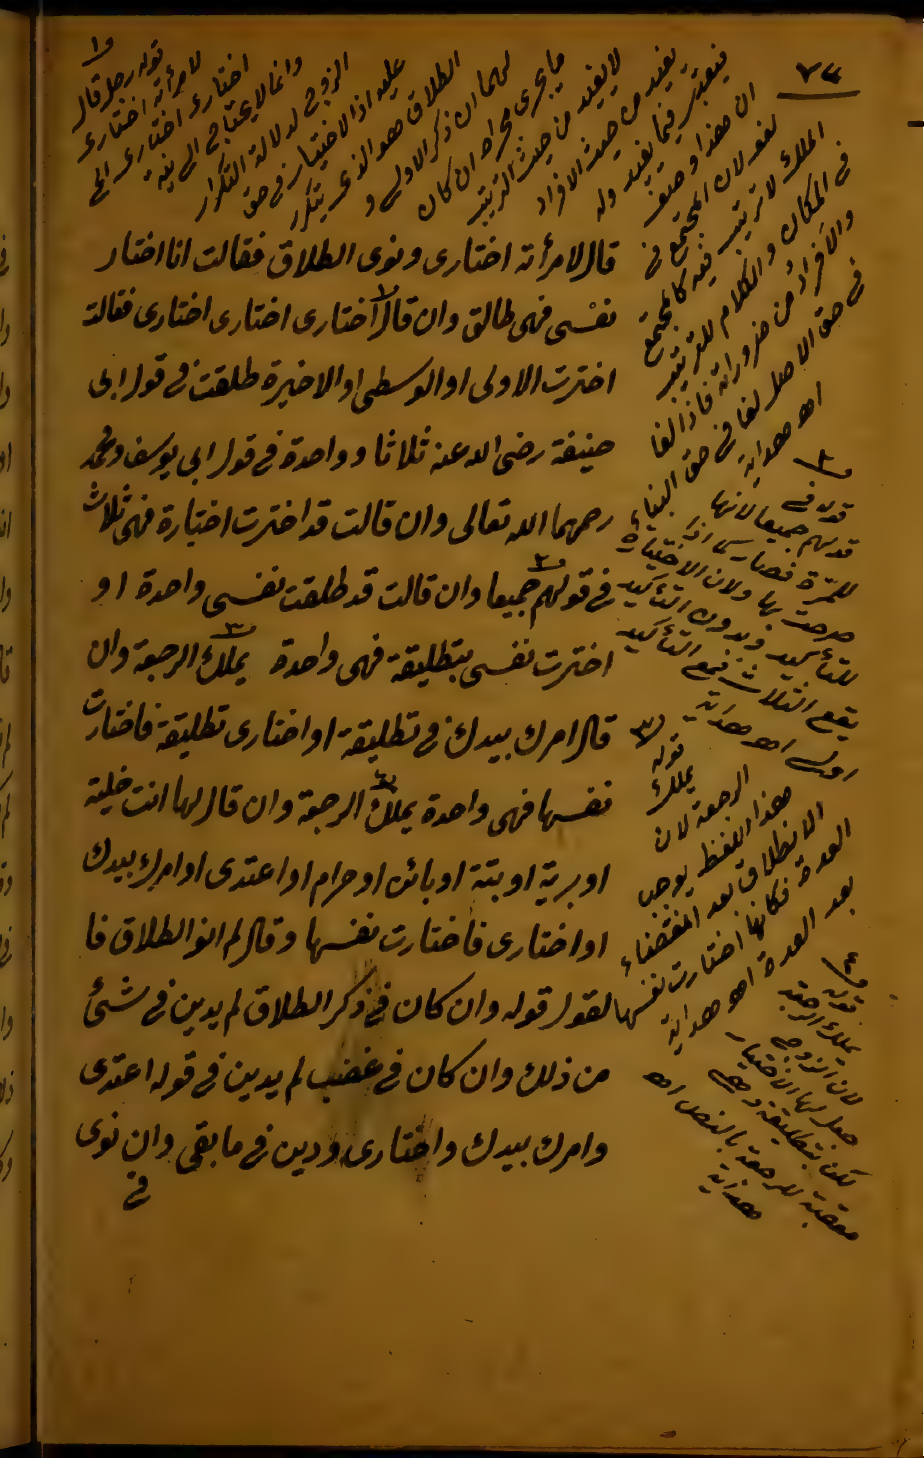 ٧٤
قال لامرأته اختارى ونوى الطلاق فقالت انا اختار
نفسى فهى طالق وان قال اختارى اختارى اختارى فقالت
اخترت الاولى او الوسطى او الاخيرة طلقت فى قول ابى
حنيفة رضى الله عنه ثلاثا وواحدة فى قول ابى يوسف ومحمد
رحمهما الله تعالى وان قالت قد اخترت اختيارة فهى ثلاث
فى قولهم جميعا وان قالت قد طلقت نفسى واحدة او
اخترت نفسى بتطليقة فهى واحدة يملك الرجعة وان
قال امرك بيدك فى تطليقة او اختارى تطليقة فاختارت
نفسها فهى واحدة يملك الرجعة وان قال لها انت خلية
او برية او بتة او بائن او حرام او اعتدى او امرك بيدك
او اختارى فاختارت نفسها وقال لم انو الطلاق فا
لقول قوله وان كان فى ذكر الطلاق لم يدين فى شئ
من ذلك وان كان فى غضب لم يدين فى قوله اعتدى
وامرك بيدك واختارى ودين فى ما بقى وان نوى
فى
١
قوله رجل قال
لامرأته اختارى
اختارى اختارى الخ
وانما لا يحتاج الى نية
الزوج لدلالة التكرار
عليه اذ الاختيار فى حق
الطلاق هو الذى يتكرر
لهما ان ذكر الاولى و
ما يجرى مجراه ان كان
لا يفيد من حيث الترتيب
يفيد من حيث الافراد
فيعتبر فيما يفيد وله
ان هذا وصف
لغو لان المجتمع فى
الملك لا ترتيب فيه كالمجتمع
فى المكان والكلام للترتيب
والافراد من ضروراته فاذا لغا
فى حق الاصل لغا فى حق البناء
اهـ هداية
٢
قوله فى
قولهم جميعا لانها
للمرة فصار كما اذا
صرحت بها ولان الاختيارة
للتأكيد وبدون التأكيد
يقع الثلاث فمع التأكيد
اولى اهـ هداية
٣
قوله
يملك
الرجعة لان
هذا اللفظ يوجب
الانطلاق بعد انقضاء
العدة فكانها اختارت نفسها
بعد العدة اهـ هداية
٤
قوله
يملك الرجعة
لان الزوج
جعل لها الاختيار
لكن بتطليقة وهى
معقبة للرجعة بالنص اهـ
هداية